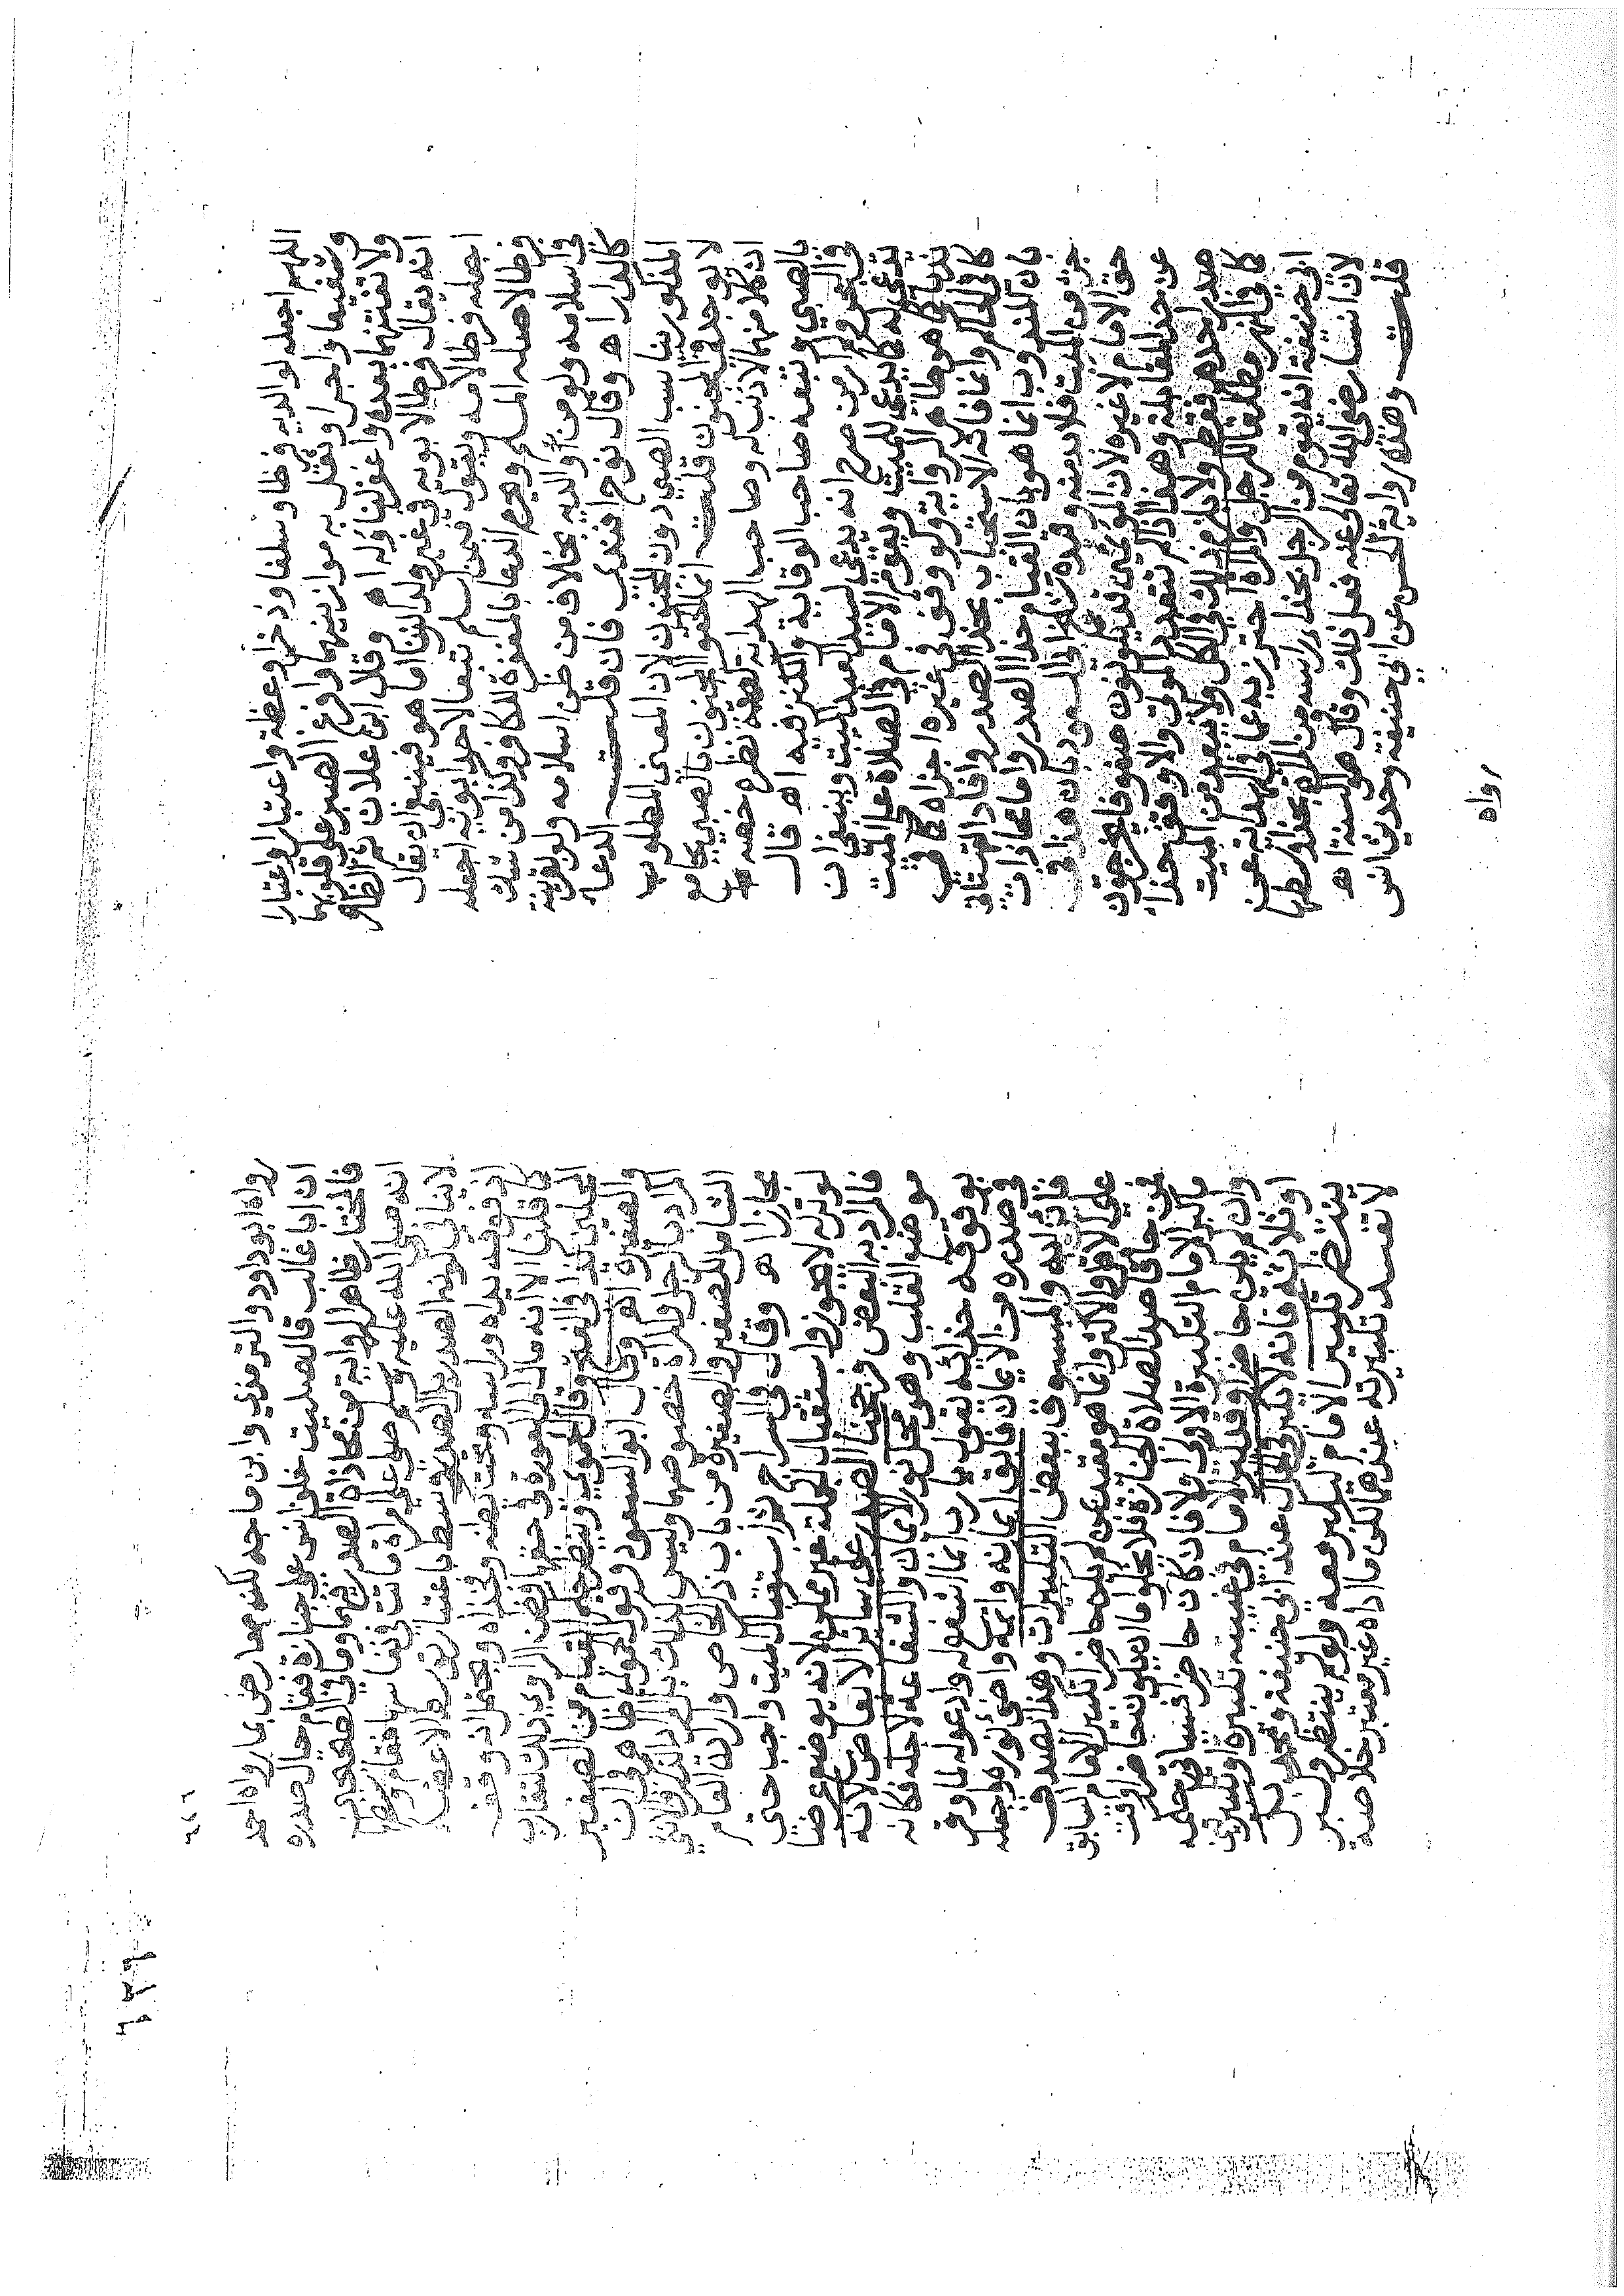 اللهم اجعله لوالديه فرطا وسلفا وذخرا وعظة واعتبارا
وشفيعا واجرا وثقل به موازينهما وافرغ الصبر على قلوبهما
ولا تفتنهما بعده واغفر لنا وله اه وقال ابن علان ثم الظاهر
انه يقال فرطا لابويه في غير ولد الزنا اما هو فينبغي ان يقال
اجعله فرطا لامه ويقول فيمن اسلم تبعا لاحد ابويه اجعله
فرطا لاصله المسلم ويحرم الدعا بالمغفرة للكافر وكذا من شك
في اسلامه ولو من والديه بخلاف من ظن اسلامه ولو بقرينة
كالدار اه وقال نوح افندي فان قلت الدعاء
المذكور يناسب الصبي دون المجنون لان المعنى المطلوب
لا يوجد في المجنون قلت انما الحقوا المجنون بالصبي بجامع
ان كلا منهما لا ذنب له وصاحب الهداية لصحة نظره خصه
بالصبي وتبعه صاحب الوقاية والكنز فيه اه قال
في البحر ولم ار من صرح انه يدعى لسيد العبد الميت وينبغي ان
يدعى له كما يدعى للميت ويقوم الامام في الصلاة على الميت
ندبا كما هو ظاهر الرواية ولو وقف في غيره اجزاه كما في
كافي الحاكم وانما فاته الاستحباب بحذا الصدر وافاد القهستاني
بان المندوب انما هو بان القيام حذا الصدر واما محاذات
جزء من الميت فلا بد منه بان هذا في
حق الامام لا غيره لان المؤتمين قد يكونون صفوفا فيخرجون
عن حد المقابلة وهذا اذا لم تتعدد الموتى والا وقف حذا
صدر احدهم فقط ولا يلزم ذلك في الكل ولا يبعد من الميت
كما في النهر مطلقا للرجل والمراة احترز به عما في الهداية عن
ابي حنيفة انه يقوم من الرجل بحذا راسه ومن المراة بحذا وسطها
لان انسا رضي الله تعالى عنه فعل ذلك وقال هو السنة اه
قلت وهذه رواية الحسن عن ابي حنيفة وحديث انس
رواه
رواه ابو داود والترمذي وابن ماجه لكنه معارض بما رواه احمد
ان ابا غالب قال صليت خلف انس على جنازة فقام حيال صدره
فالمختار ظاهر الرواية من محاذاة الصدر فيهما وما في الصحيحين
انه صلى الله عليه وسلم صلى على امراة ماتت في نفاسها فقام وسطها
لا ينافي كونه الصدر بل الصدر وسط باعتبار توسط الاعضا
اذ فوقه يداه وراسه وتحته بطنه وفخذاه ويحتمل انه وقف
كما قلنا الا انه مال الى العورة في حقها فظن الراوي ذلك لتقارب
المحلين كذا في الفتح وقال الحموي وينظر حكم القيام من الصغير
والصغيرة اه وقال ابو السعود وقول الحموي ظاهر في ان
المراد بالرجل والمراة خصوصهما وليس كذلك بل المراد الذكر والانثى
الشامل للصغير والصغيرة من باب ذكر الخاص وارادة العام
مجازا اه وقال في السراج شرط استقبال الميت واجب حتى
لو ترك لا يجوز واستقبال الجملة غير ممكن لانه يوضع عرضا
فالمراد به البعض ورجحنا الصدر على سائر الابعاض لانه
موضع القلب وهو محل نور الايمان والشفاعة لاجله فكانه
بوقوفه حذائه يقول يا رب انما اشفع له وادعو له لما وقر
في صدره من الايمان فابق ايمانه وانسه واضئ نوره واجعله
قائد اليه والمسبوق ببعض التكبيرات وهذا يصدق
على الاقل والاكثر وانما هو مقيد بمن لم يكن حاضرا تكبير الامام السابق
فمن جاء قاصدا لصلاة الجنازة فلا يخلو اما ان يكون حاضرا وقت
ما كبر الامام التكبيرة الاولى او لا فان كان حاضرا فسياتي حكمه
وان لم يكن حاضرا وقد كبر الامام في غيبته تكبيرة او تكبيرتين
او ثلاثة فانه لا يكبر في الحال عند ابي حنيفة ومحمد بل
ينتظر تكبير الامام ليكبر معه ولو لم ينتظر وكبر
لا تفسد تكبيرته عندهما لكن ما اداه غير معتبر خلاصة